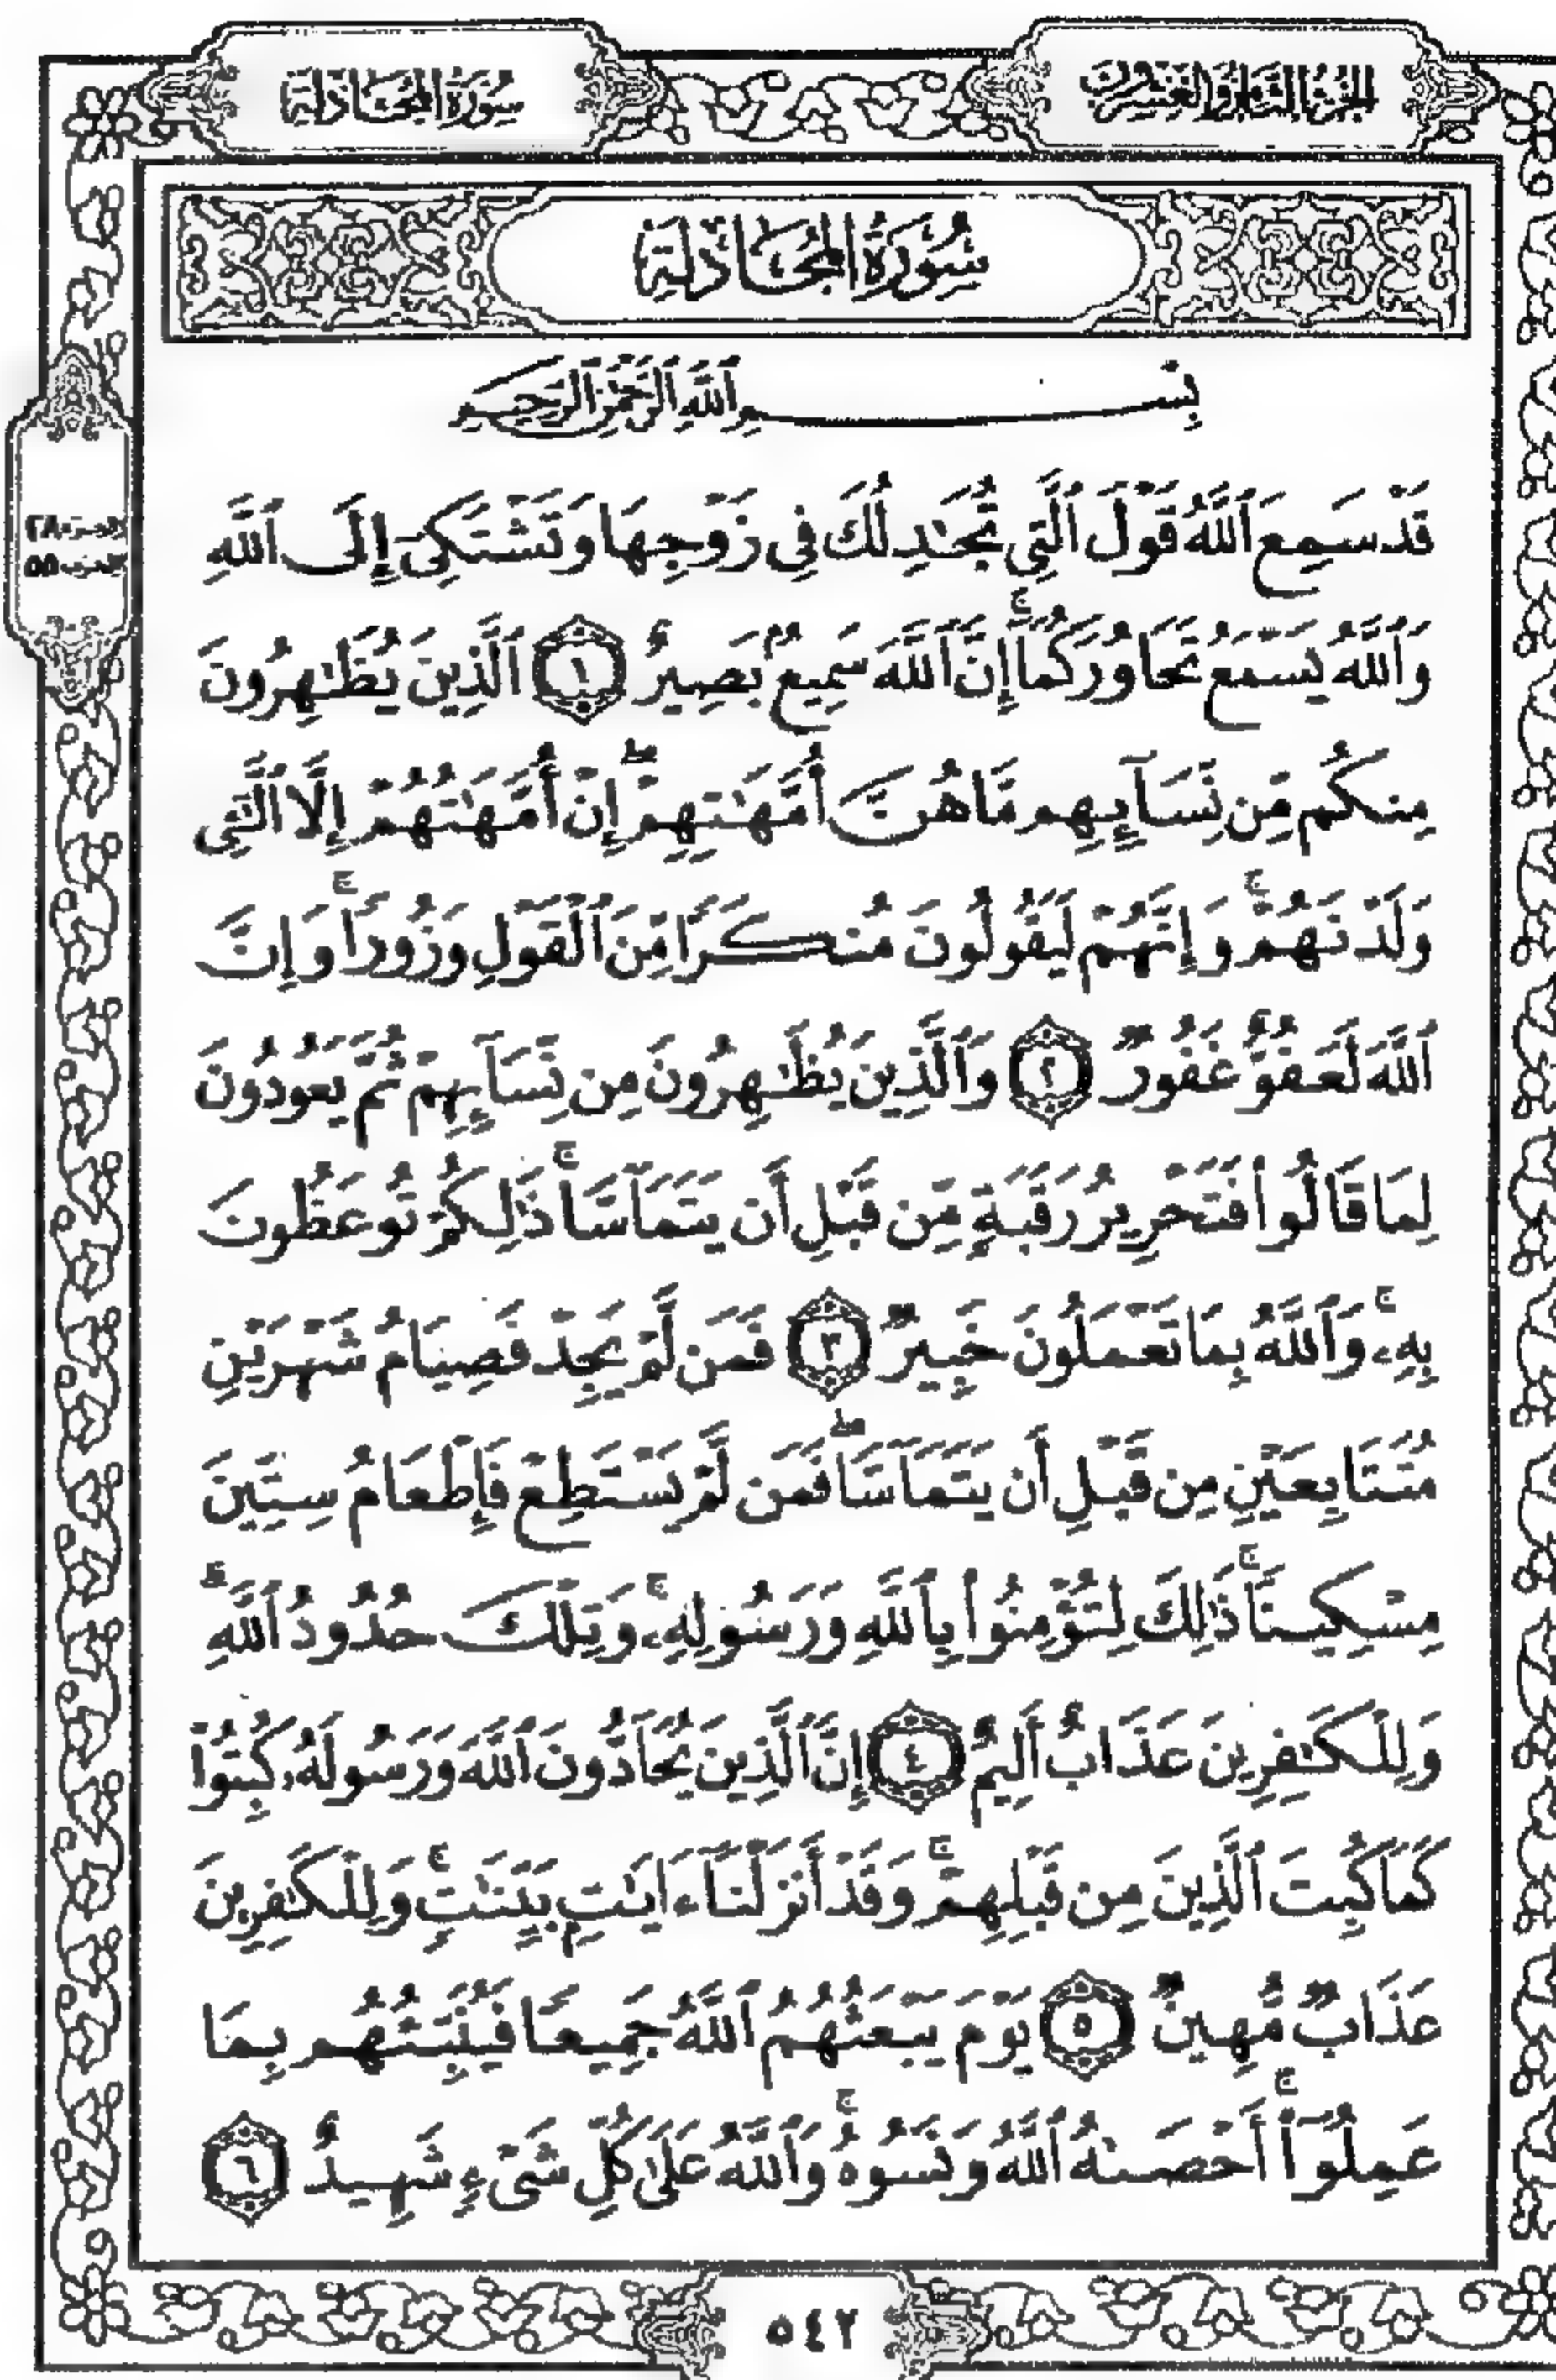 الجزء الثامن والعشرون
سورة المجادلة
سُورَةُ المُجَادلَةِ
بِسْمِ ٱللَّهِ ٱلرَّحْمَٰنِ ٱلرَّحِيمِ
قَدْ سَمِعَ ٱللَّهُ قَوْلَ ٱلَّتِي تُجَٰدِلُكَ فِي زَوْجِهَا وَتَشْتَكِيٓ إِلَى ٱللَّهِ
الجزء ٢٨
الحزب ٥٥
وَٱللَّهُ يَسْمَعُ تَحَاوُرَكُمَآۚ إِنَّ ٱللَّهَ سَمِيعُۢ بَصِيرٌ ١ ٱلَّذِينَ يُظَٰهِرُونَ
مِنكُم مِّن نِّسَآئِهِم مَّا هُنَّ أُمَّهَٰتِهِمْۖ إِنْ أُمَّهَٰتُهُمْ إِلَّا ٱلَّٰٓـِٔي
وَلَدْنَهُمْۚ وَإِنَّهُمْ لَيَقُولُونَ مُنكَرًا مِّنَ ٱلْقَوْلِ وَزُورًاۚ وَإِنَّ
ٱللَّهَ لَعَفُوٌّ غَفُورٌ ٢ وَٱلَّذِينَ يُظَٰهِرُونَ مِن نِّسَآئِهِمْ ثُمَّ يَعُودُونَ
لِمَا قَالُوا۟ فَتَحْرِيرُ رَقَبَةٍ مِّن قَبْلِ أَن يَتَمَآسَّاۚ ذَٰلِكُمْ تُوعَظُونَ
بِهِۦۚ وَٱللَّهُ بِمَا تَعْمَلُونَ خَبِيرٌ ٣ فَمَن لَّمْ يَجِدْ فَصِيَامُ شَهْرَيْنِ
مُتَتَابِعَيْنِ مِن قَبْلِ أَن يَتَمَآسَّاۖ فَمَن لَّمْ يَسْتَطِعْ فَإِطْعَامُ سِتِّينَ
مِسْكِينًاۚ ذَٰلِكَ لِتُؤْمِنُوا۟ بِٱللَّهِ وَرَسُولِهِۦۚ وَتِلْكَ حُدُودُ ٱللَّهِۗ
وَلِلْكَٰفِرِينَ عَذَابٌ أَلِيمٌ ٤ إِنَّ ٱلَّذِينَ يُحَآدُّونَ ٱللَّهَ وَرَسُولَهُۥ كُبِتُوا۟
كَمَا كُبِتَ ٱلَّذِينَ مِن قَبْلِهِمْۚ وَقَدْ أَنزَلْنَآ ءَايَٰتٍۭ بَيِّنَٰتٍۚ وَلِلْكَٰفِرِينَ
عَذَابٌ مُّهِينٌ ٥ يَوْمَ يَبْعَثُهُمُ ٱللَّهُ جَمِيعًا فَيُنَبِّئُهُم بِمَا
عَمِلُوٓا۟ۚ أَحْصَىٰهُ ٱللَّهُ وَنَسُوهُۚ وَٱللَّهُ عَلَىٰ كُلِّ شَيْءٍ شَهِيدٌ ٦
٥٤٢